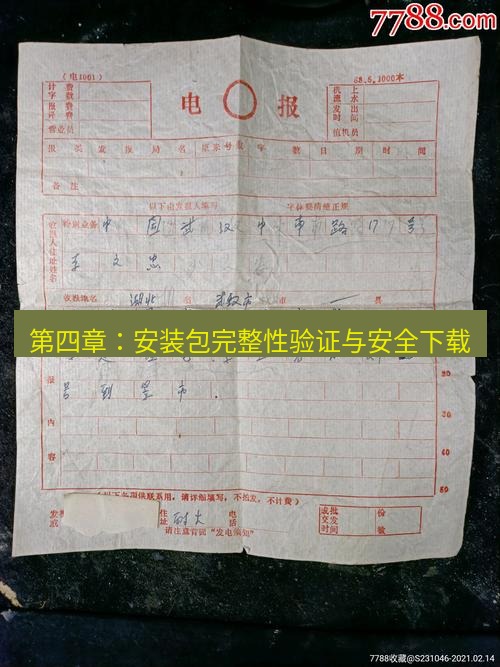 7788.com
（电1001）
68.5.1000本
电 报
计费
字数
报费
译费
营业员
机上
流水
发出
时间
值机员
报类 发报局名 原来号数 字数 日期 时间
备注
以下由发报人填写 字体要清楚正规
收报人住址姓名
特别业务 中国武汉中市路17号
李文忠
收报地名 湖北省 武汉市 市 县
第四章：安装包完整性验证与安全下载
报
内
容
号到
市．
30
40
50
（以下各项供联系用，请详细填写，不拍发，不计费）
住址
电话
请注意背面“发电须知”
或批
交发
时间
份数
7788收藏@S231046-2021.02.14